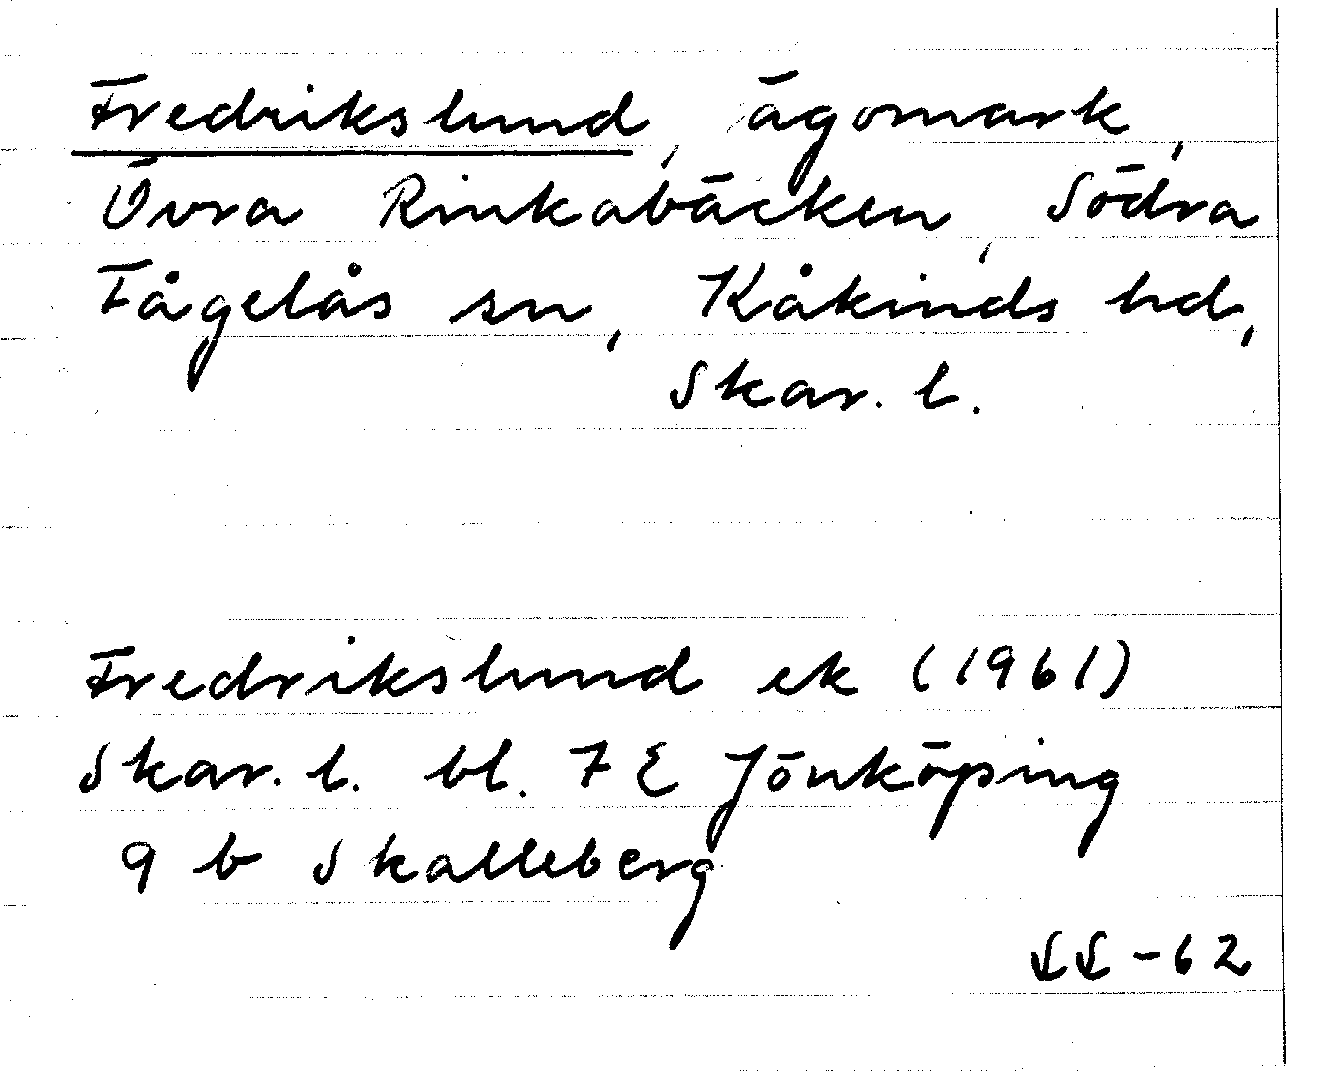 Fredrikslund, ägomark,
Övra Rinkabäcken, Södra
Fågelås sn, Kåkinds hd,
Skar. l.
Fredrikslund ek (1961)
Skar. l. bl. 7 E Jönköping
9 b Skalleberg
SS-62